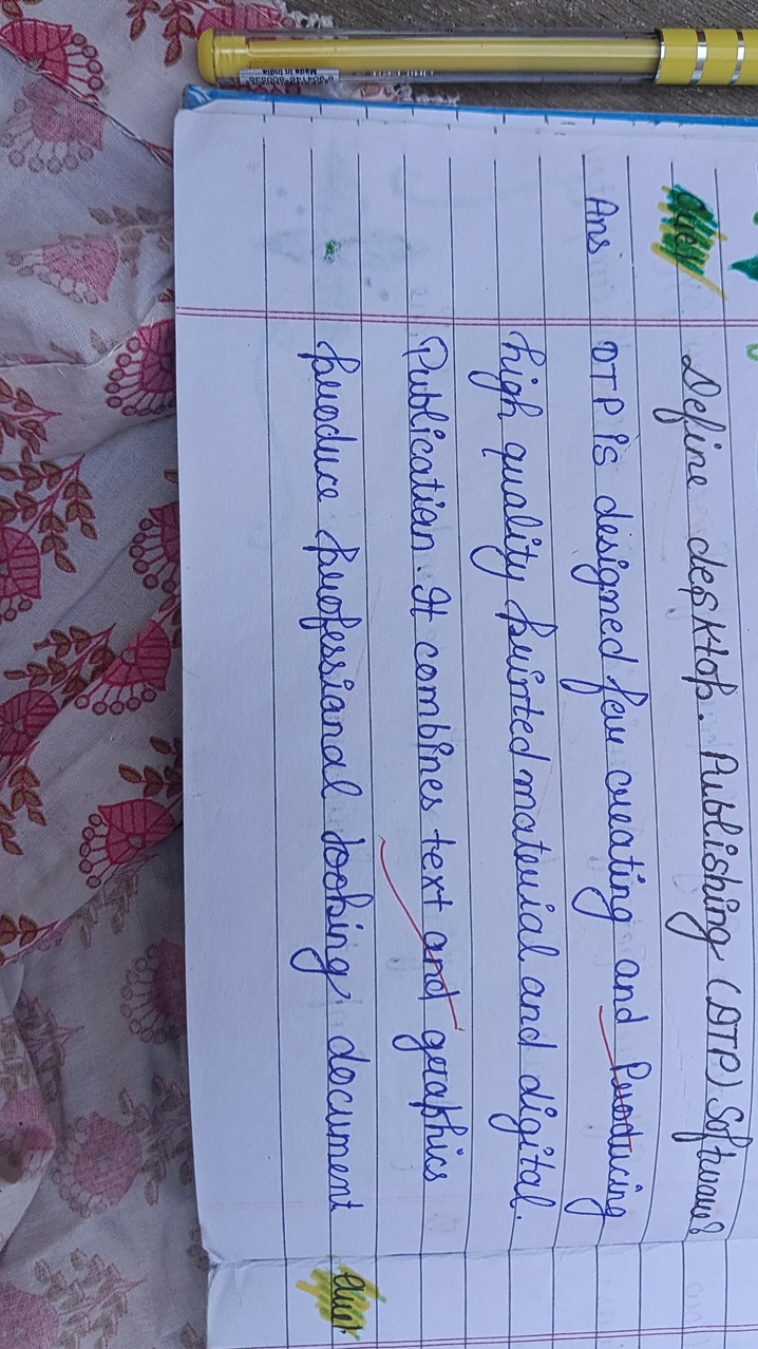 Ques Define desktop. Publishing (DTP) Software?
Ans DTP is designed for creating and Producing
high quality printed material and digital.
Publication. It combines text and graphics
produce professional looking document
Made in India